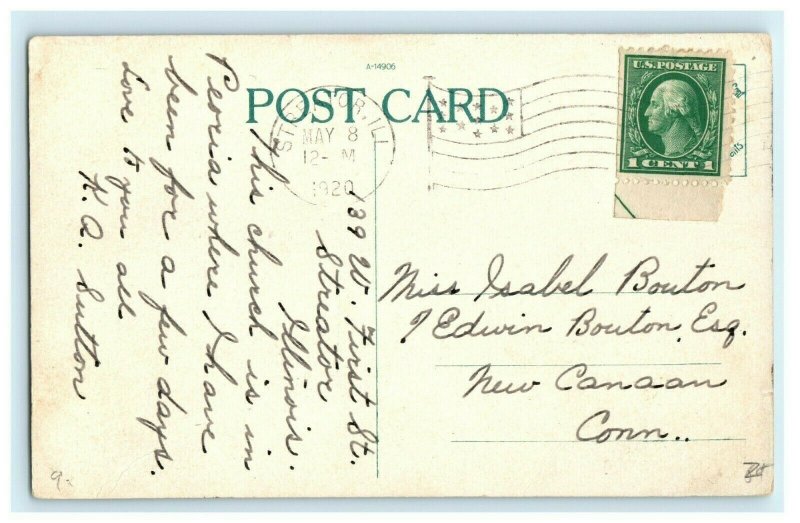 A-14906
POST CARD
STREATOR, ILL
MAY 8
12-M
1920
U.S. POSTAGE
1 CENT 1
139 W. First St.
Streator
Illinois.
This church is in
Peoria where I have
been for a few days.
Love to you all
K. A. Sutton
Miss Isabel Bouton
Edwin Bouton Esq.
New Canaan
Conn..
9-